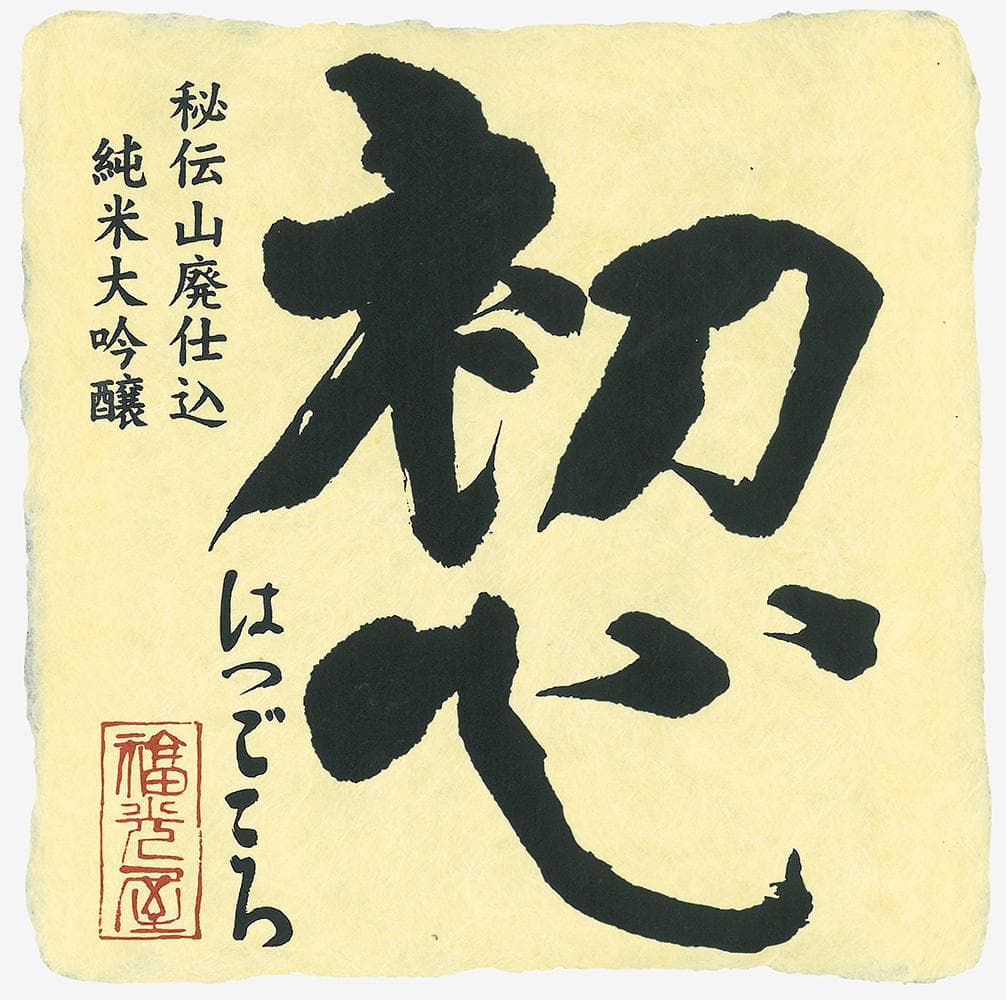 初心
はつごころ
秘伝山廃仕込
純米大吟醸
福光屋